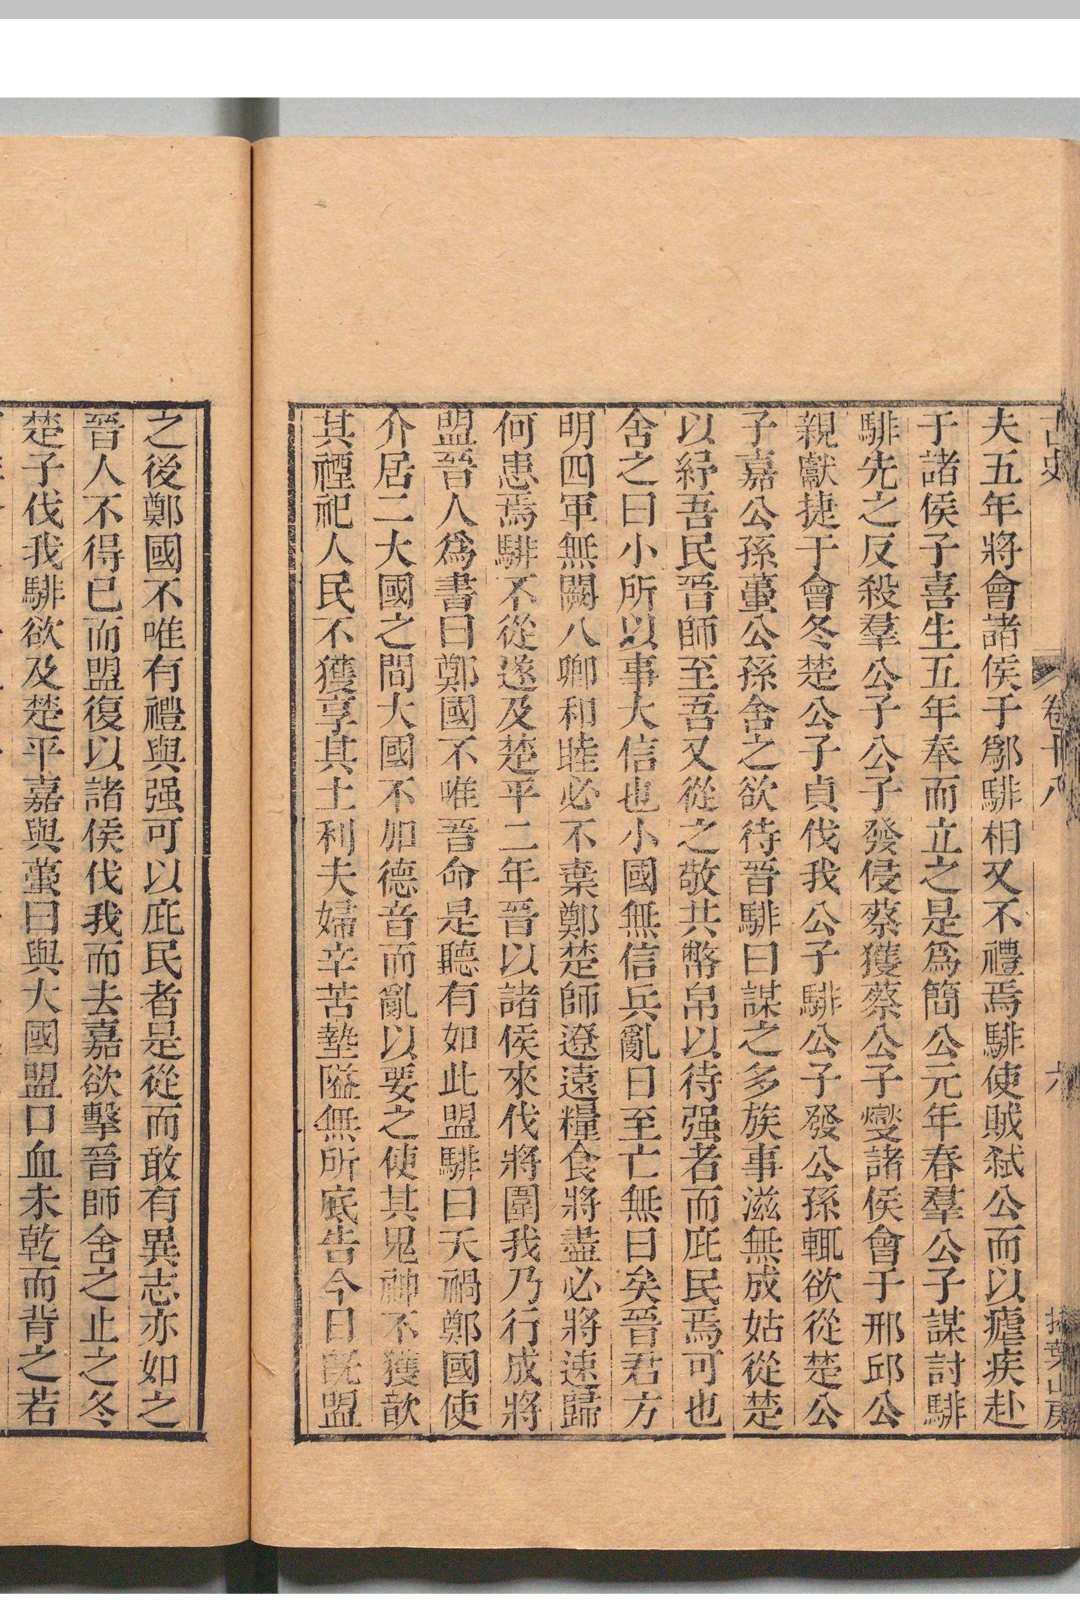 古史 卷十八 六 掃葉山房
夫五年將會諸侯于鄔騑相又不禮焉騑使賊弑公而以瘧疾赴
于諸侯子喜生五年奉而立之是爲簡公元年春羣公子謀討騑
騑先之反殺羣公子公子發侵蔡獲蔡公子燮諸侯會于邢邱公
親獻捷于會冬楚公子貞伐我公子騑公子發公孫輒欲從楚公
子嘉公孫蠆公孫舍之欲待晉騑曰謀之多族事滋無成姑從楚
以紓吾民晉師至吾又從之敬共幣帛以待强者而庇民焉可也
舍之曰小所以事大信也小國無信兵亂日至亡無日矣晉君方
明四軍無闕八卿和睦必不棄鄭楚師遼遠糧食將盡必將速歸
何患焉騑不從遂及楚平二年晉以諸侯來伐將圍我乃行成將
盟晉人爲書曰鄭國不唯晉命是聽有如此盟騑曰天禍鄭國使
介居二大國之間大國不加德音而亂以要之使其鬼神不獲歆
其禋祀人民不獲享其土利夫婦辛苦墊隘無所底告今日旣盟
之後鄭國不唯有禮與强可以庇民者是從而敢有異志亦如之
晉人不得已而盟復以諸侯伐我而去嘉欲擊晉師舍之止之冬
楚子伐我騑欲及楚平嘉與蠆曰與大國盟口血未乾而背之若